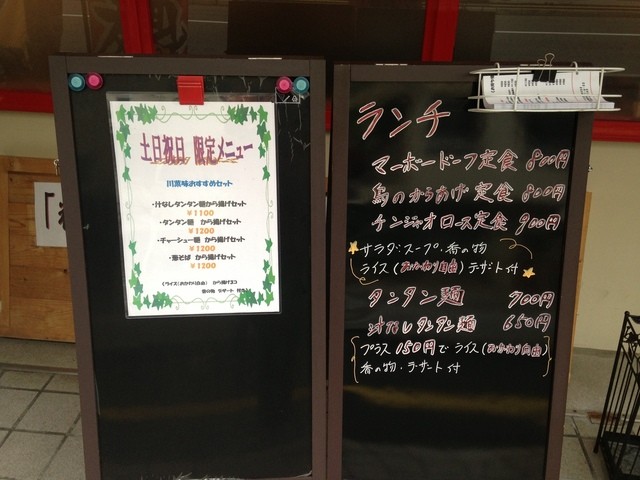 土日祝日 限定メニュー
川菜味おすすめセット
・汁なしタンタン麺から揚げセット
￥1100
・タンタン麺 から揚げセット
￥1200
・チャーシュー麺 から揚げセット
￥1200
・葱そば から揚げセット
￥1200
(ライス(おかわり自由) から揚げ3コ
香の物 デザート 付き)
ランチ
マーボードーフ定食 800円
鳥のからあげ定食 800円
ケンジャオロース定食 900円
サラダ・スープ・香の物
ライス(おかわり自由) デザート付
タンタン麺 700円
汁なしタンタン麺 650円
プラス150円でライス(おかわり自由)
香の物・デザート付